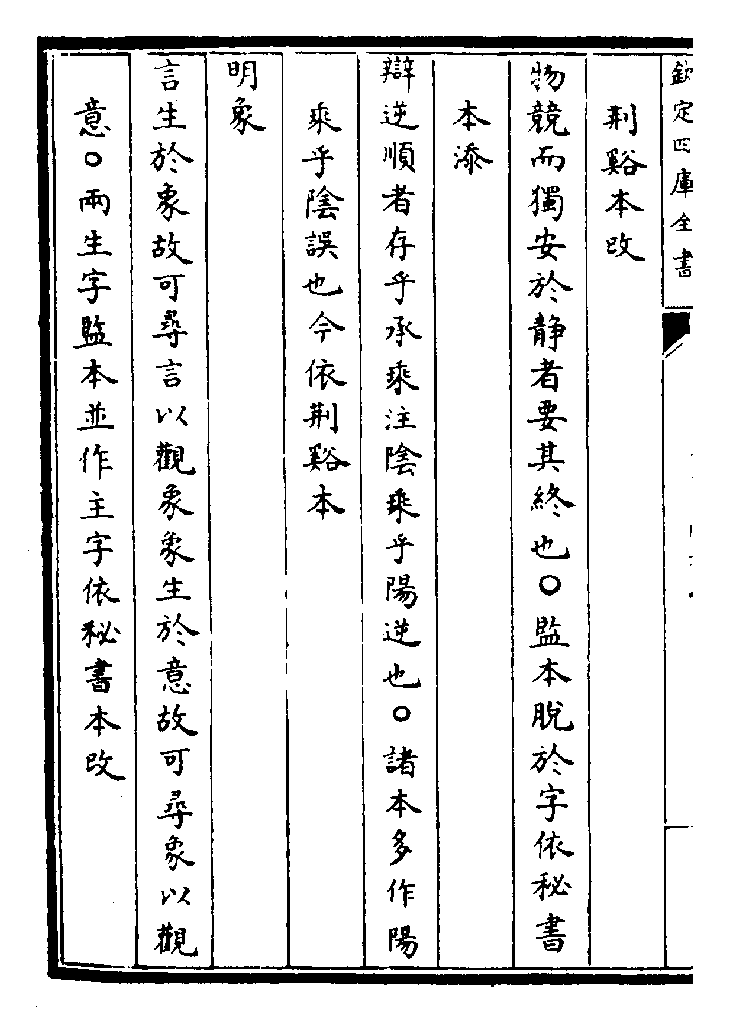 欽定四庫全書
荆谿本改
物競而獨安於静者要其終也○監本脱於字依秘書
本添
辯逆順者存乎承乘注陰乘乎陽逆也○諸本多作陽
乘乎陰誤也今依荆谿本
明象
言生於象故可尋言以觀象象生於意故可尋象以觀
意○兩生字監本並作主字依秘書本改